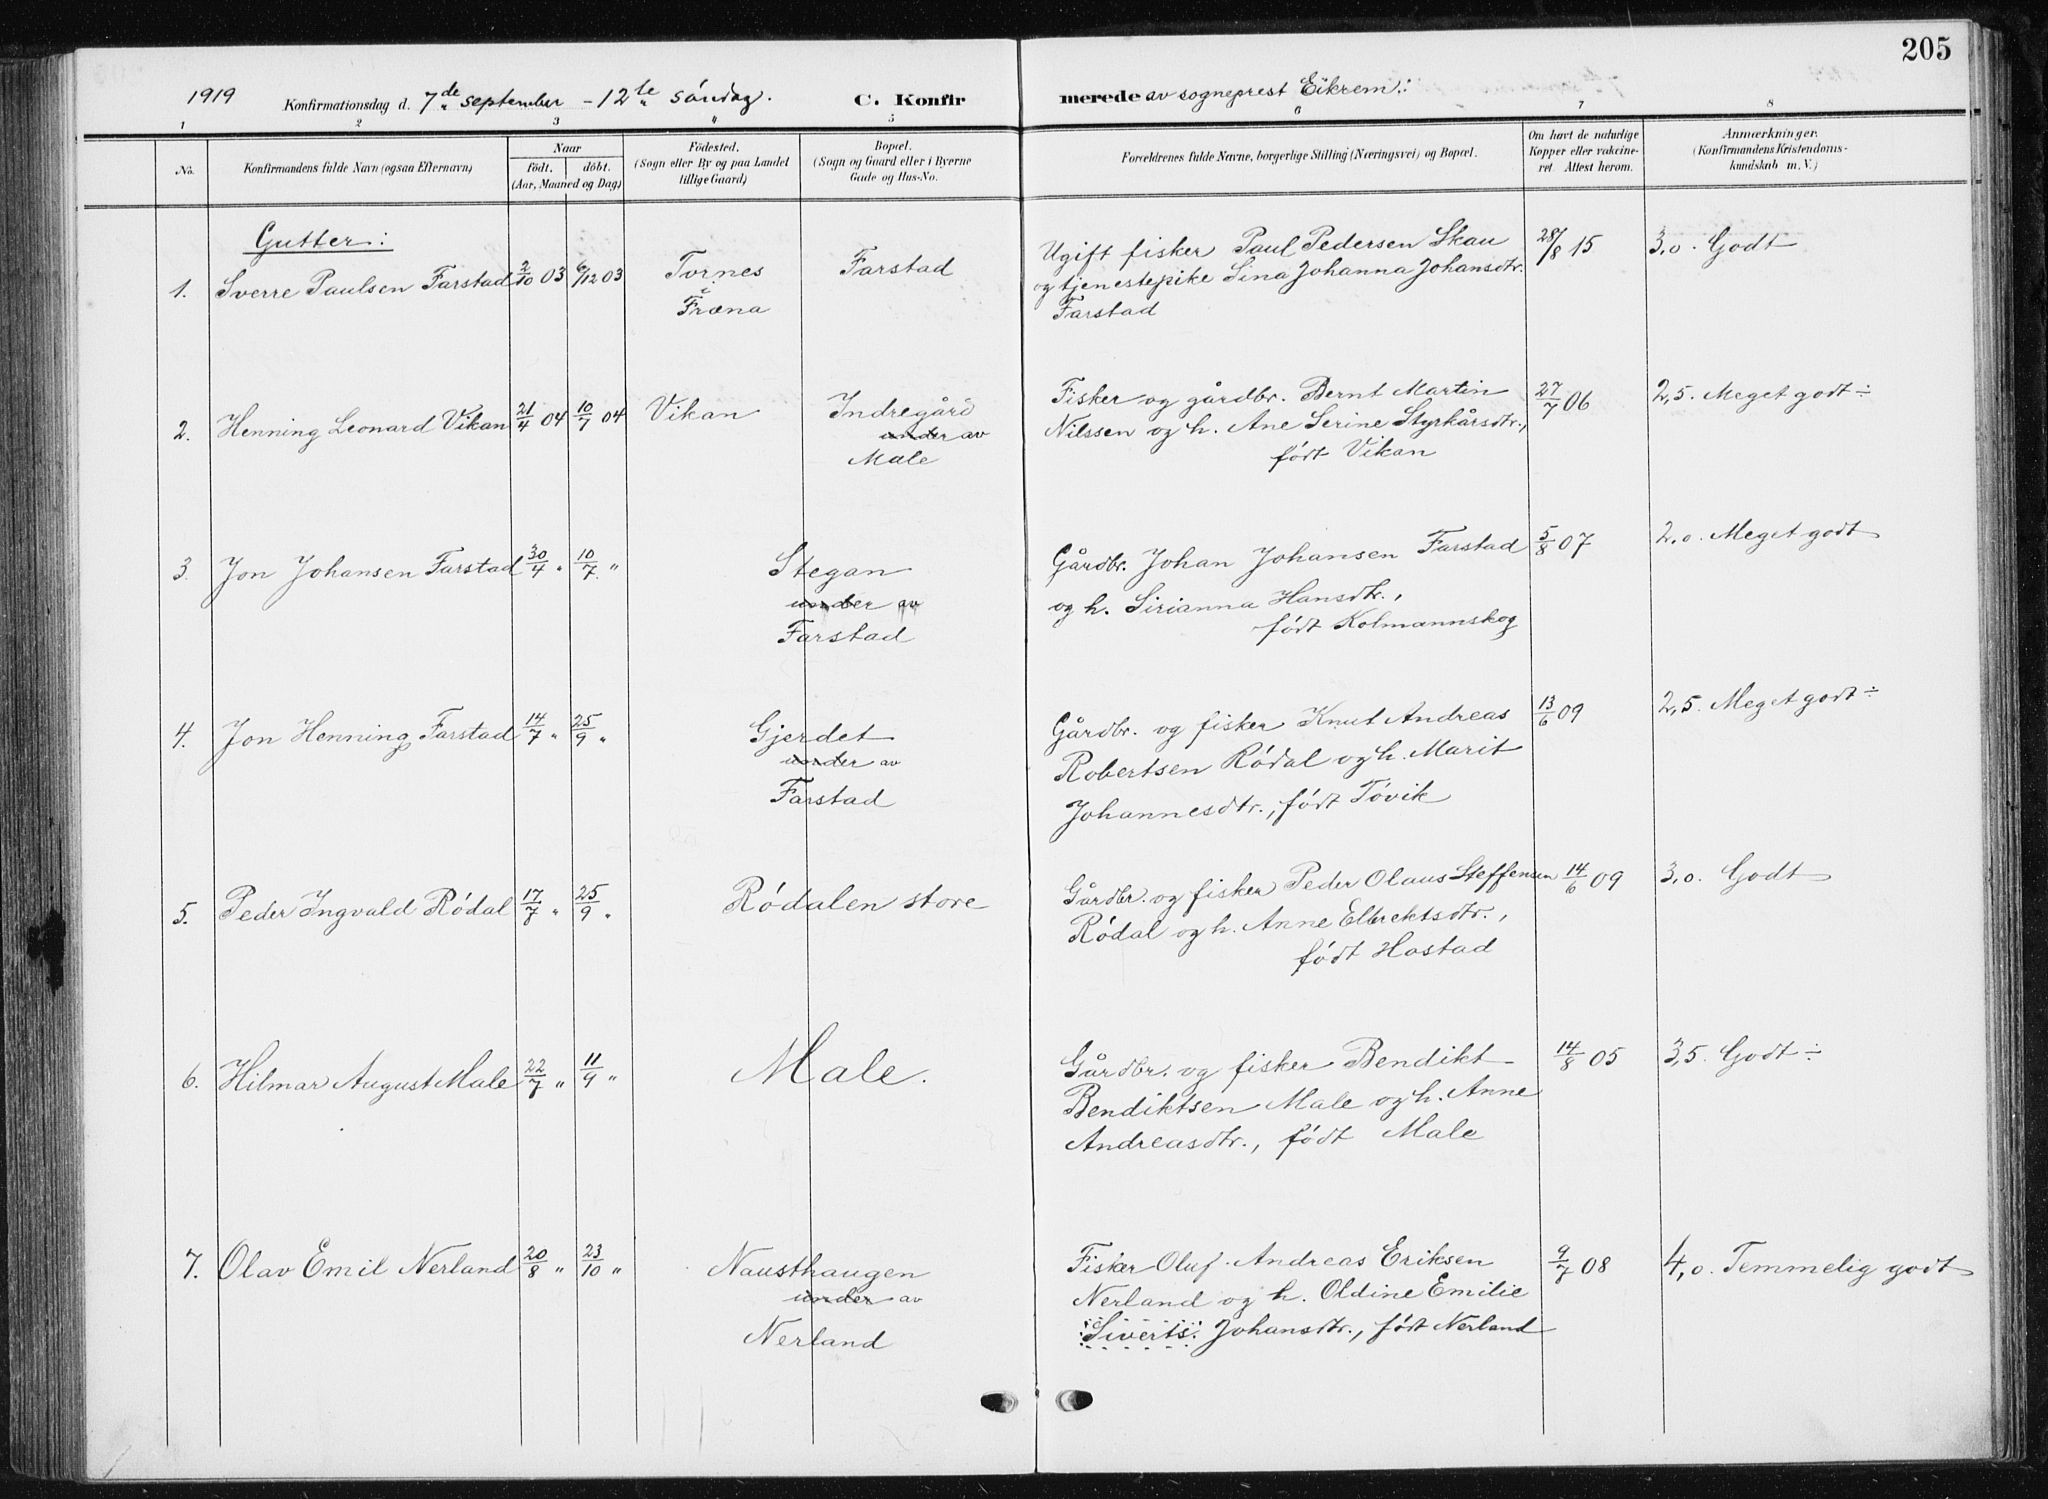 205
1919 Konfirmationsdag d. 7de september - 12te søndag. C. Konfirmerede av sogneprest Eikrem:
1 2 3 " 5 6 7 8
No.
Konfirmandens fulde Navn (ogsaa Efternavn)
Naar
født. døbt.
(Aar, Maaned og Dag)
Fødested.
(Sogn eller By og paa Landet
tillige Gaard)
Bopæl.
(Sogn og Gaard eller i Byerne
Gade og Hus-No.
Forældrenes fulde Navne, borgerlige Stilling (Næringsvei) og Bopæl.
Om havt de naturlige
Kopper eller vakcine-
ret. Attest herom.
Anmærkninger.
(Konfirmandens Kristendoms-
kundskab m. V.)
Gutter:
1. Sverre Paulsen Farstad 2/10 03 6/12 03
Tornes
i
Fræna
Farstad
Ugift fisker Paul Pedersen Skau
og tjenestepike Sina Johanna Johansdtr.
Farstad
28/8 15
3,0. Godt
2. Henning Leonard Vikan 21/4 04 10/7 04
Vikan
Indregård
under av
Male
Fisker og gårdbr. Bernt Martin
Nilssen og h. Ane Serine Styrkårsdtr.,
født Vikan
27/7 06
2,5. Meget godt ÷
3. Jon Johansen Farstad 30/4 " 10/7 "
Stegan
under av
Farstad
Gårdbr. Johan Johansen Farstad
og h. Sirianna Hansdtr.,
født Kolmannskog
5/8 07
2,0. Meget godt
4. Jon Henning Farstad 14/7 " 25/9 "
Gjerdet
under av
Farstad
Gårdbr. og fisker Knut Andreas
Robertsen Rødal og h. Marit
Johannesdtr., født Tøvik
13/6 09
2,5. Meget godt ÷
5. Peder Ingvald Rødal 17/7 " 25/9 "
Rødalen store
Gårdbr. og fisker Peder Olaus Steffensen
Rødal og h. Anne Elbrektsdtr.,
født Hostad
14/6 09
3,0. Godt
6. Hilmar August Male 22/7 " 11/9 "
Male.
Gårdbr. og fisker Bendikt
Bendiktsen Male og h. Anne
Andreasdtr., født Male
14/8 05
3,5. Godt ÷
7. Olav Emil Nerland 20/8 " 23/10 "
Nausthaugen
under av
Nerland
Fisker Oluf Andreas Eriksen
Nerland og h. Oldine Emilie
Siverts. Johansdtr., født Nerland
9/7 08
4,0. Temmelig godt